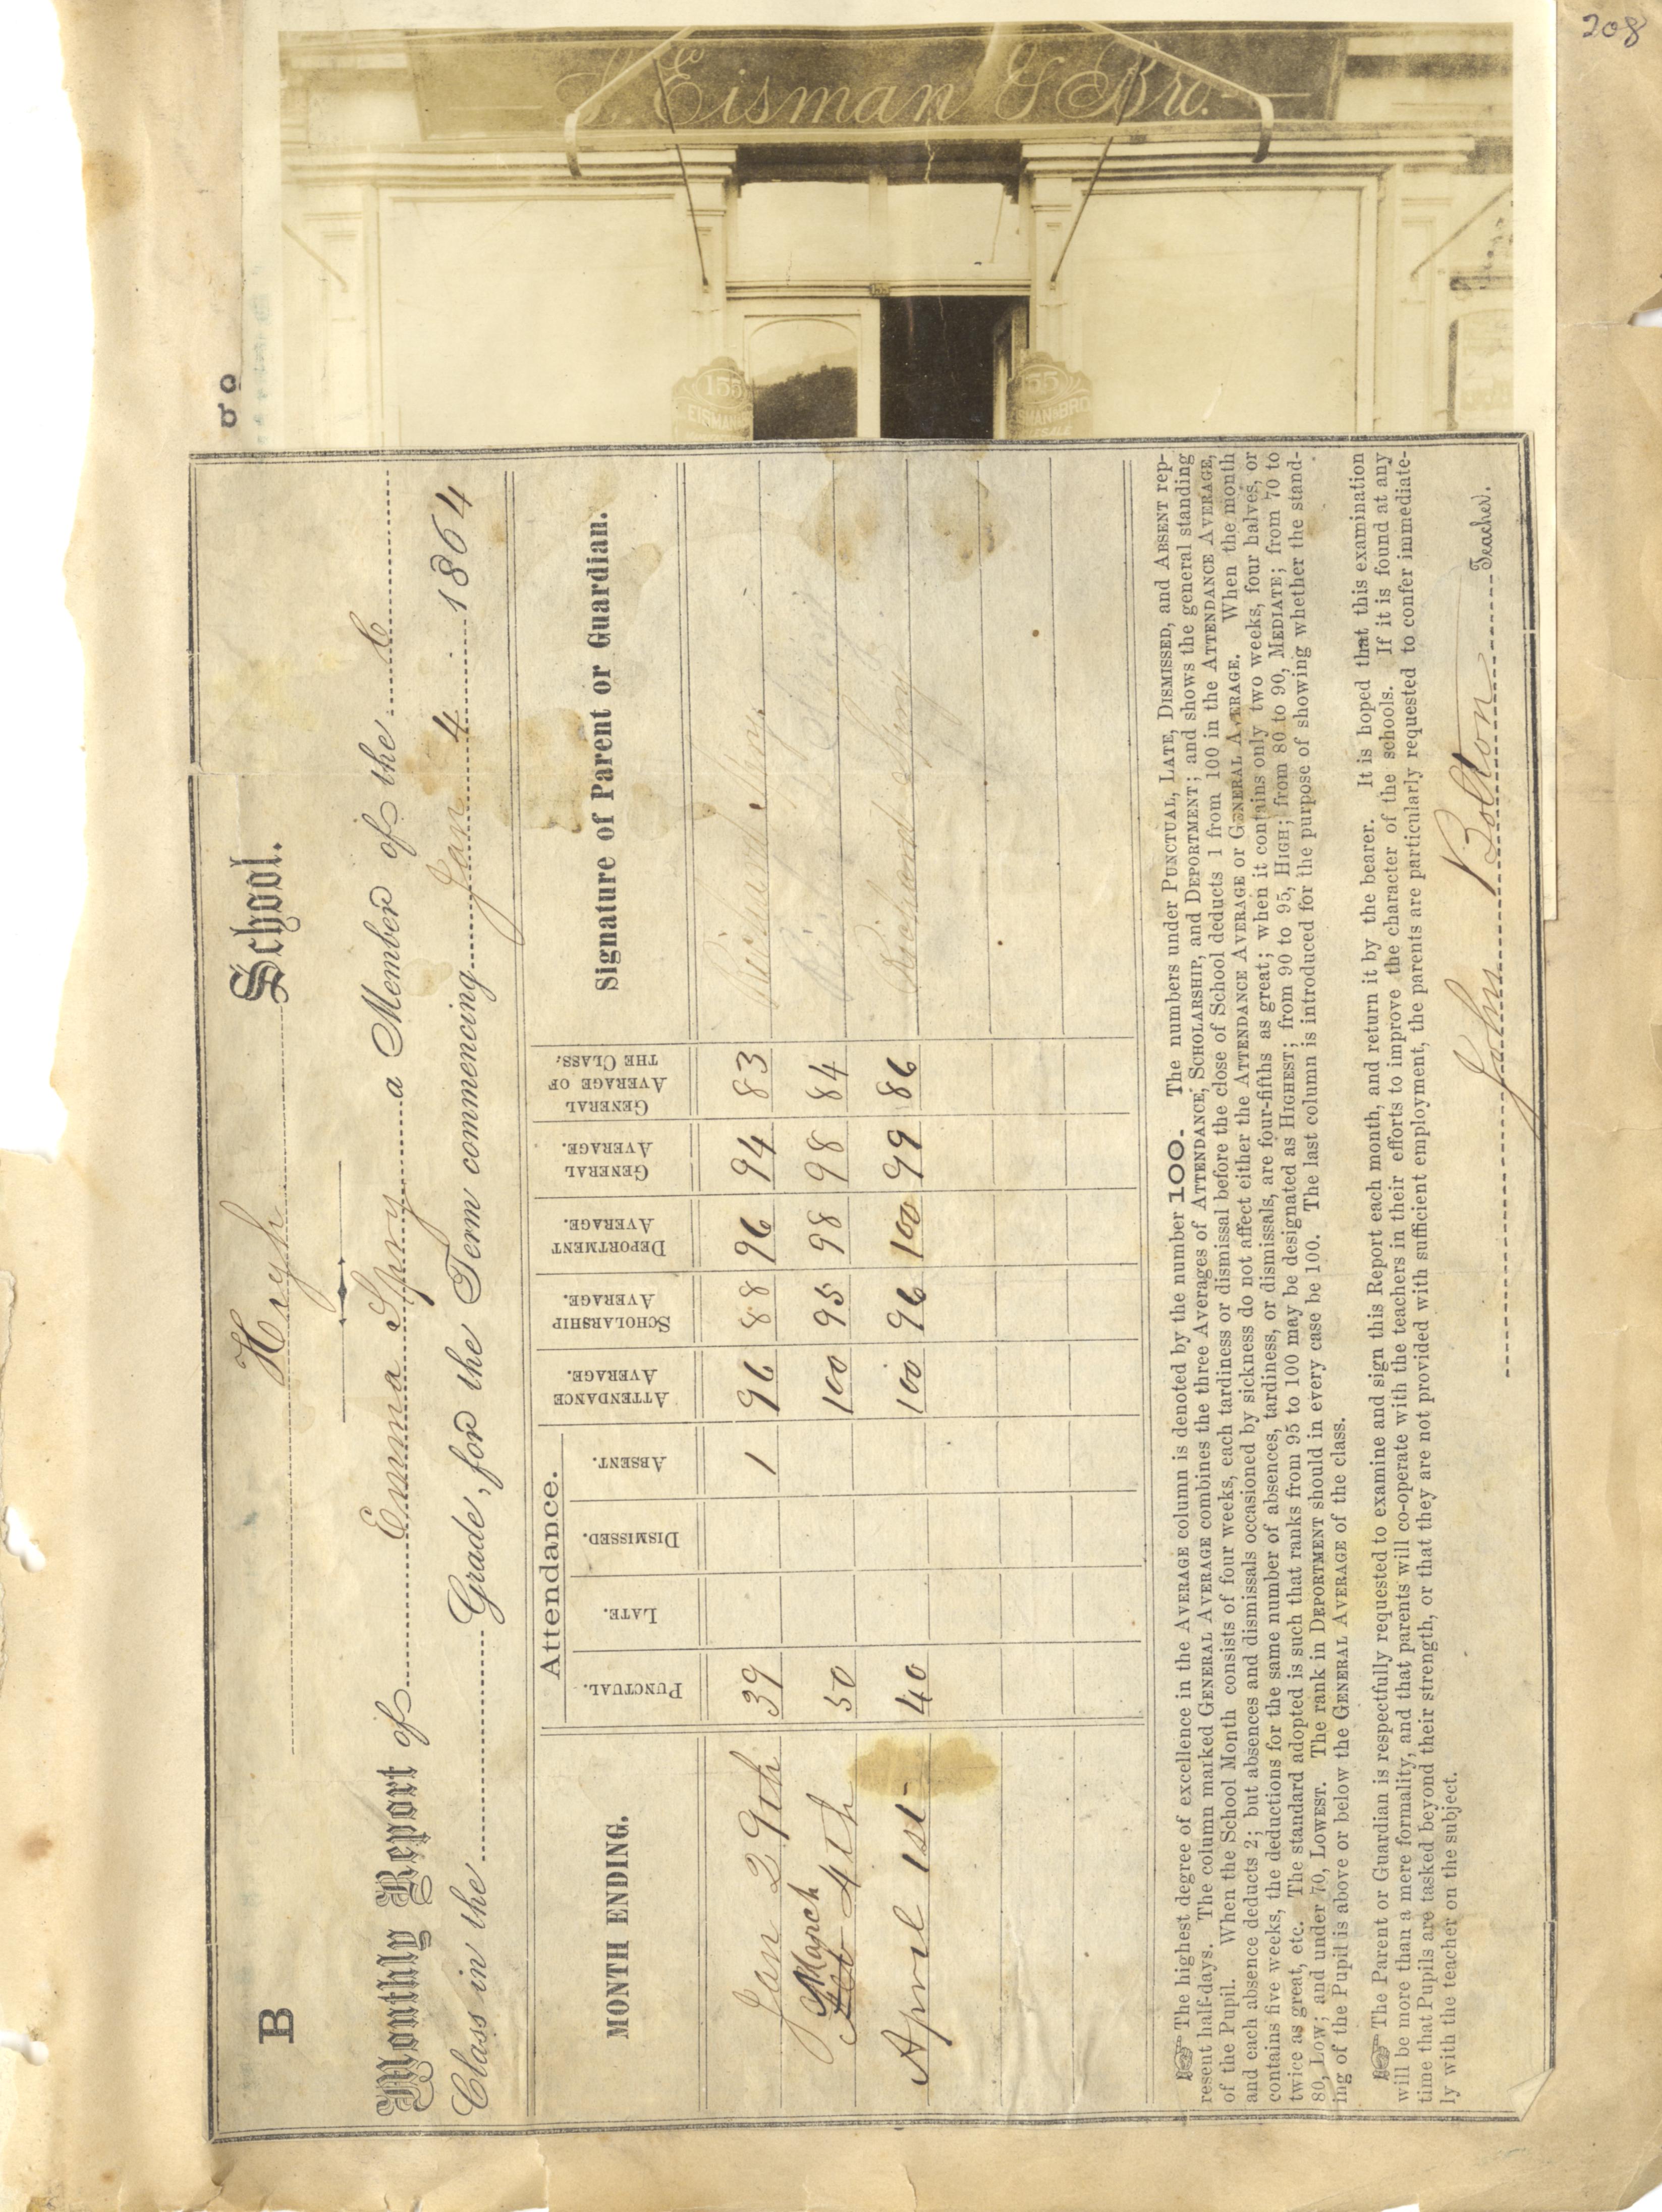 208
S. Eisman & Bro.
155
155
EISMAN
155
EISMAN & BRO
B
High School.
Monthly Report of Emma Spry a Member of the C
Class in the Grade, for the Term commencing Jan 4 1864
MONTH ENDING.
Attendance.
PUNCTUAL. LATE. DISMISSED. ABSENT.
ATTENDANCE AVERAGE.
SCHOLARSHIP AVERAGE.
DEPORTMENT AVERAGE.
GENERAL AVERAGE.
GENERAL AVERAGE OF THE CLASS.
Signature of Parent or Guardian.
Jan 29th 39 1 96 88 96 94 83 Richard Spry
March
Feb 4th 50 100 95 98 98 84
April 1st 40 100 96 100 99 86 Richard Spry
The highest degree of excellence in the AVERAGE column is denoted by the number 100. The numbers under PUNCTUAL, LATE, DISMISSED, and ABSENT rep-
resent half-days. The column marked GENERAL AVERAGE combines the three Averages of ATTENDANCE, SCHOLARSHIP, and DEPORTMENT; and shows the general standing
of the Pupil. When the School Month consists of four weeks, each tardiness or dismissal before the close of School deducts 1 from 100 in the ATTENDANCE AVERAGE,
and each absence deducts 2; but absences and dismissals occasioned by sickness do not affect either the ATTENDANCE AVERAGE or GENERAL AVERAGE. When the month
contains five weeks, the deductions for the same number of absences, tardiness, or dismissals, are four-fifths as great; when it contains only two weeks, four halves, or
twice as great, etc. The standard adopted is such that ranks from 95 to 100 may be designated as HIGHEST; from 90 to 95, HIGH; from 80 to 90, MEDIATE; from 70 to
80, LOW; and under 70, LOWEST. The rank in DEPORTMENT should in every case be 100. The last column is introduced for the purpose of showing whether the stand-
ing of the Pupil is above or below the GENERAL AVERAGE of the class.
The Parent or Guardian is respectfully requested to examine and sign this Report each month, and return it by the bearer. It is hoped that this examination
will be more than a mere formality, and that parents will co-operate with the teachers in their efforts to improve the character of the schools. If it is found at any
time that Pupils are tasked beyond their strength, or that they are not provided with sufficient employment, the parents are particularly requested to confer immediate-
ly with the teacher on the subject.
John Bolton Teacher.